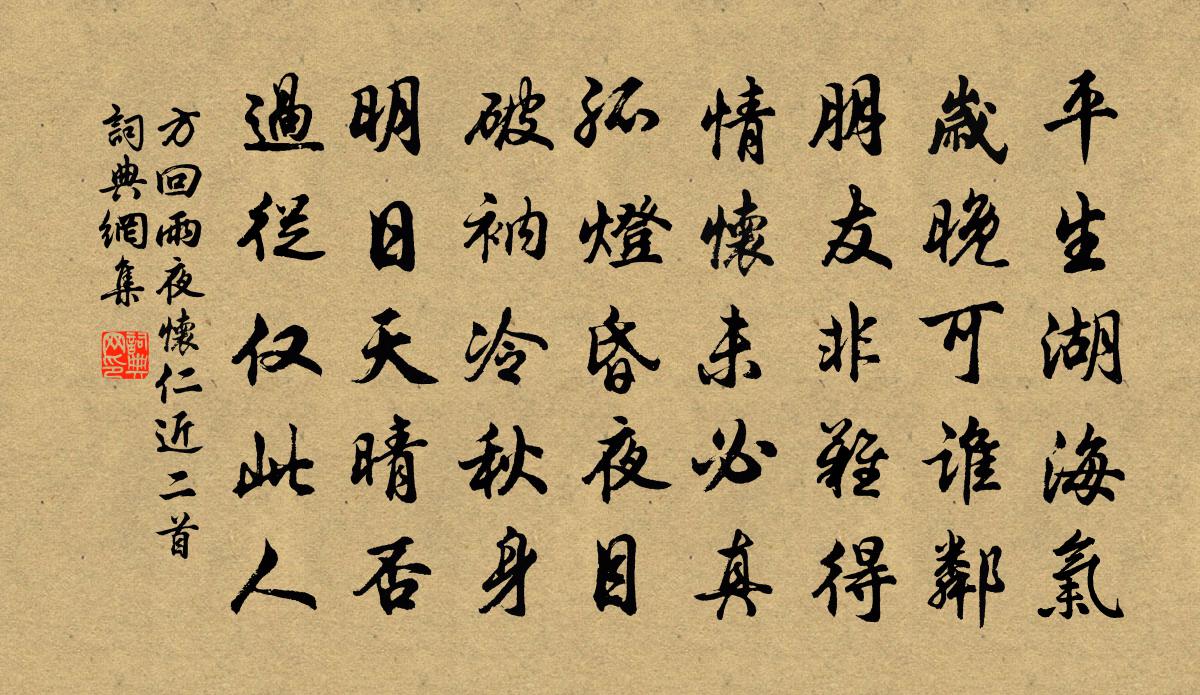 平生湖海氣
歲晚可誰鄰
朋友非難得
情懷未必真
孤燈昏夜目
破衲冷秋身
明日天晴否
過從仅此人
方回雨夜懷仁近二首
詞典網集
詞典网印